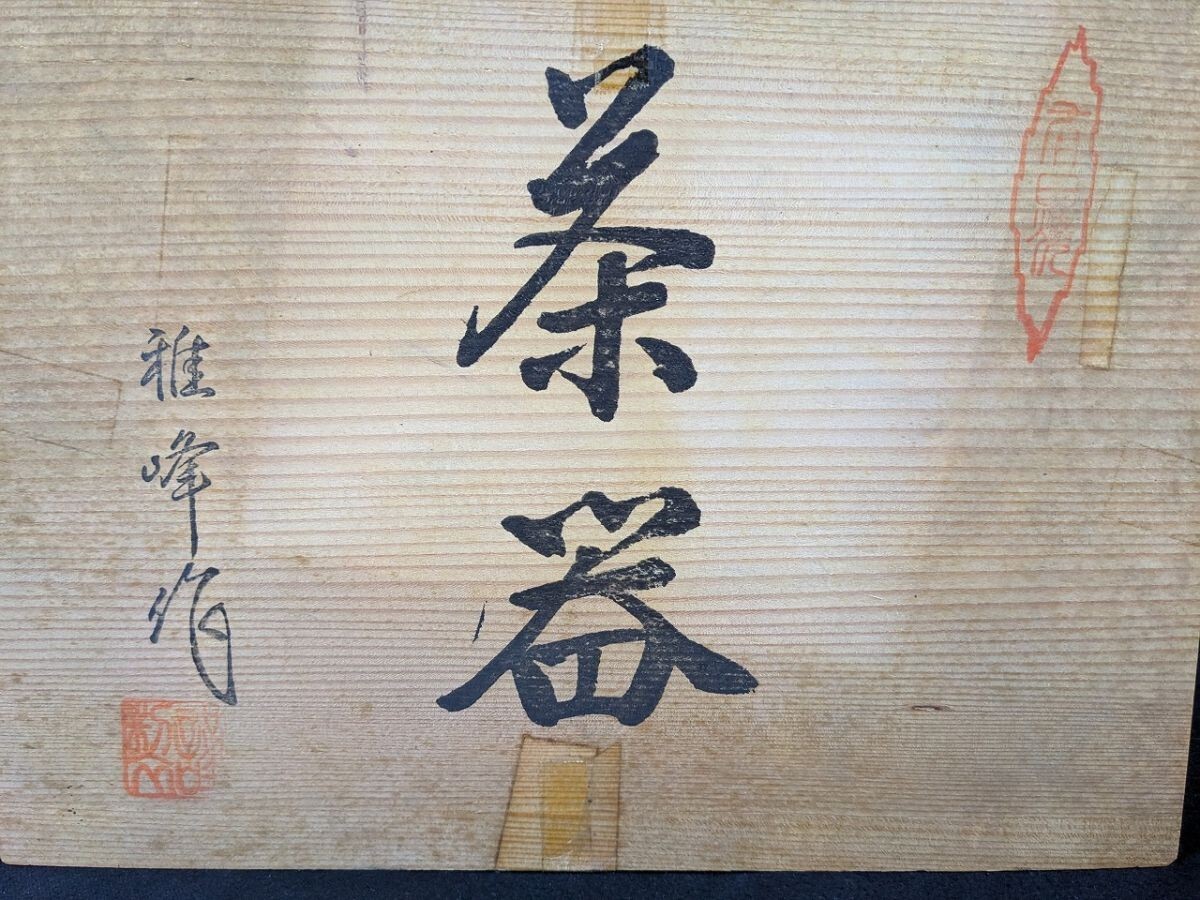 茶器
雅峰作